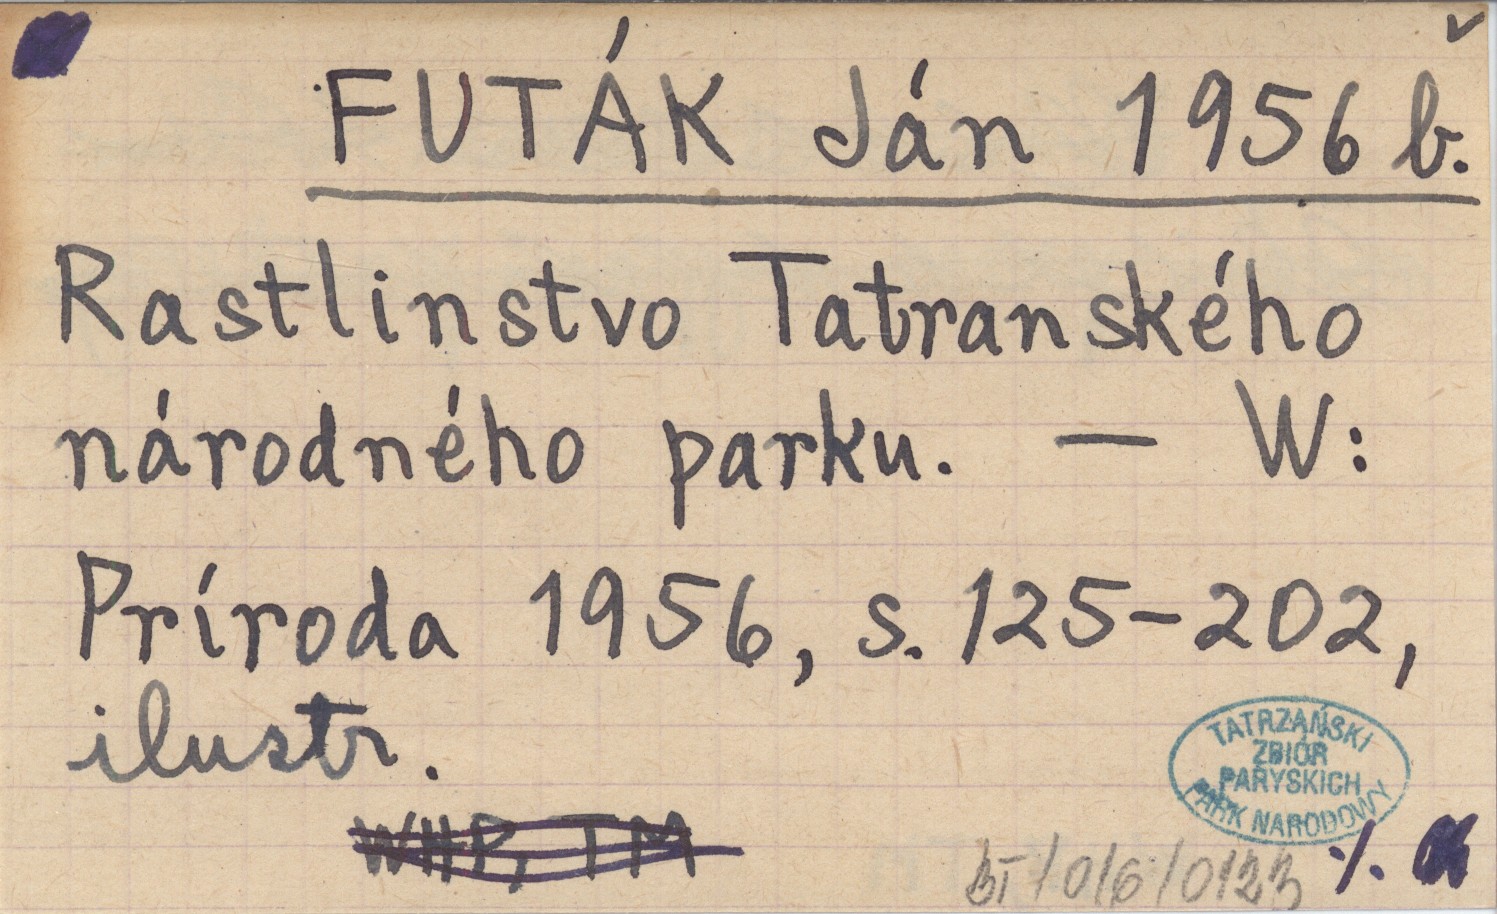 FUTÁK Ján 1956 b.
Rastlinstvo Tatranského
národného parku. — W:
Príroda 1956, s. 125-202,
ilustr.
TATRZAŃSKI
ZBIÓR
PARYSKICH
PARK NARODOWY
WHP, TM
BT/016/0123